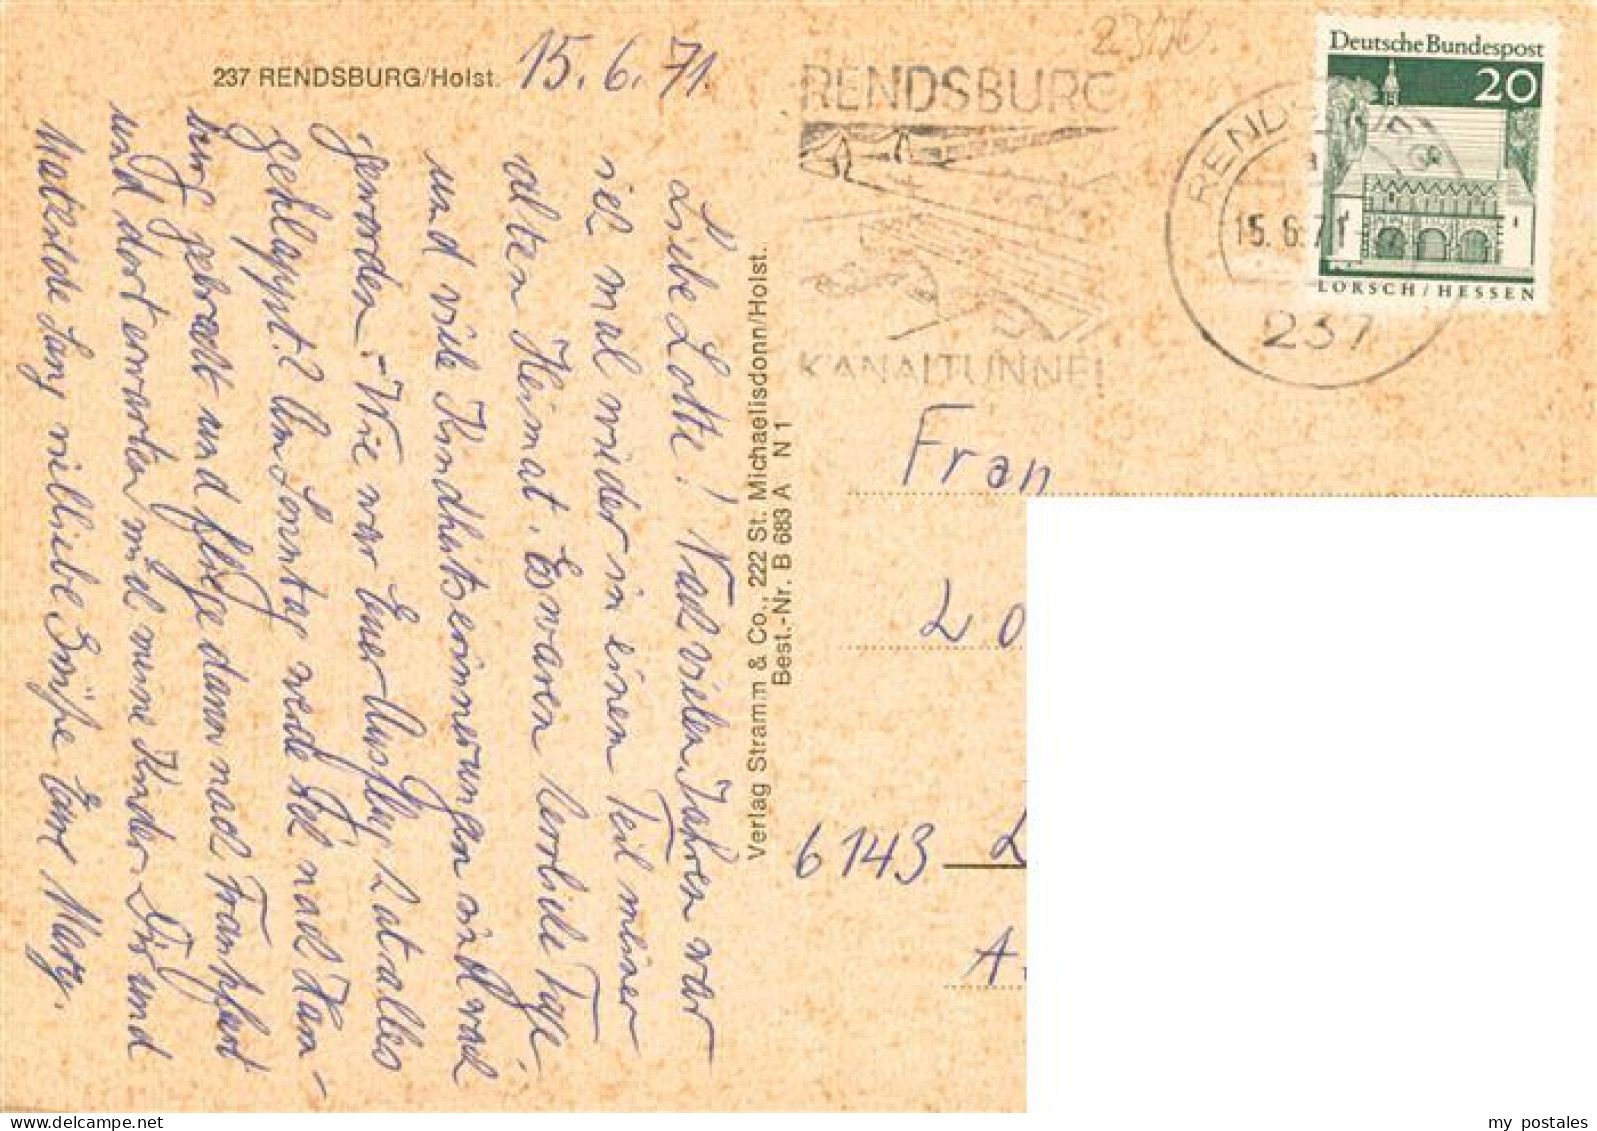 237 RENDSBURG/Holst.
15.6.71.
Liebe Lotte! Nach vielen Jahren war
ich mal wieder in einem Teil meiner
alten Heimat. Es waren herrliche Tage
und viele Kindheitserinnerungen sind wach
geworden. - Wie war Euer Ausflug, hat alles
geklappt? Am Sonntag werde ich nach Ham-
burg gebracht und fliege dann nach Frankfurt
und dort erwarten mich meine Kinder. Dir und
Mathilde Lang viel liebe Grüße Eure Mary.
Verlag Stramm & Co., 222 St. Michaelisdonn/Holst.
Best.-Nr. B 683 A N 1
RENDSBURG
KANALTUNNEL
RENDSBURG
a
15.6.71
237
Deutsche Bundespost
20
LORSCH/HESSEN
Frau
Lo
6143 L
A
my postales